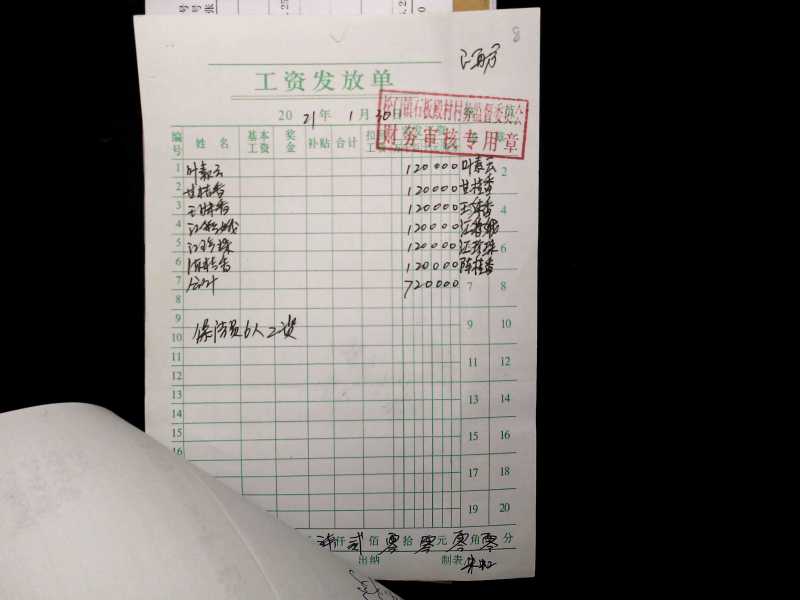 8
工资发放单
2021年1月30日
石板殿村村务监督委员会
财务审核专用章
编号 姓名 基本工资 奖金 补贴 合计
1 叶素云 120000 叶素云 2
2 甘桂香 120000 甘桂香
3 120000 4
4 120000
5 江珍珠 120000 江珍珠 6
6 陈桂香 120000 陈桂香
7 合计 720000 7 8
8
9 9 10
10 保洁员6人工资
11 11 12
12
13 13 14
14
15 15 16
16
17 18
19 20
柒仟贰佰零拾零元零角零分
出纳 制表